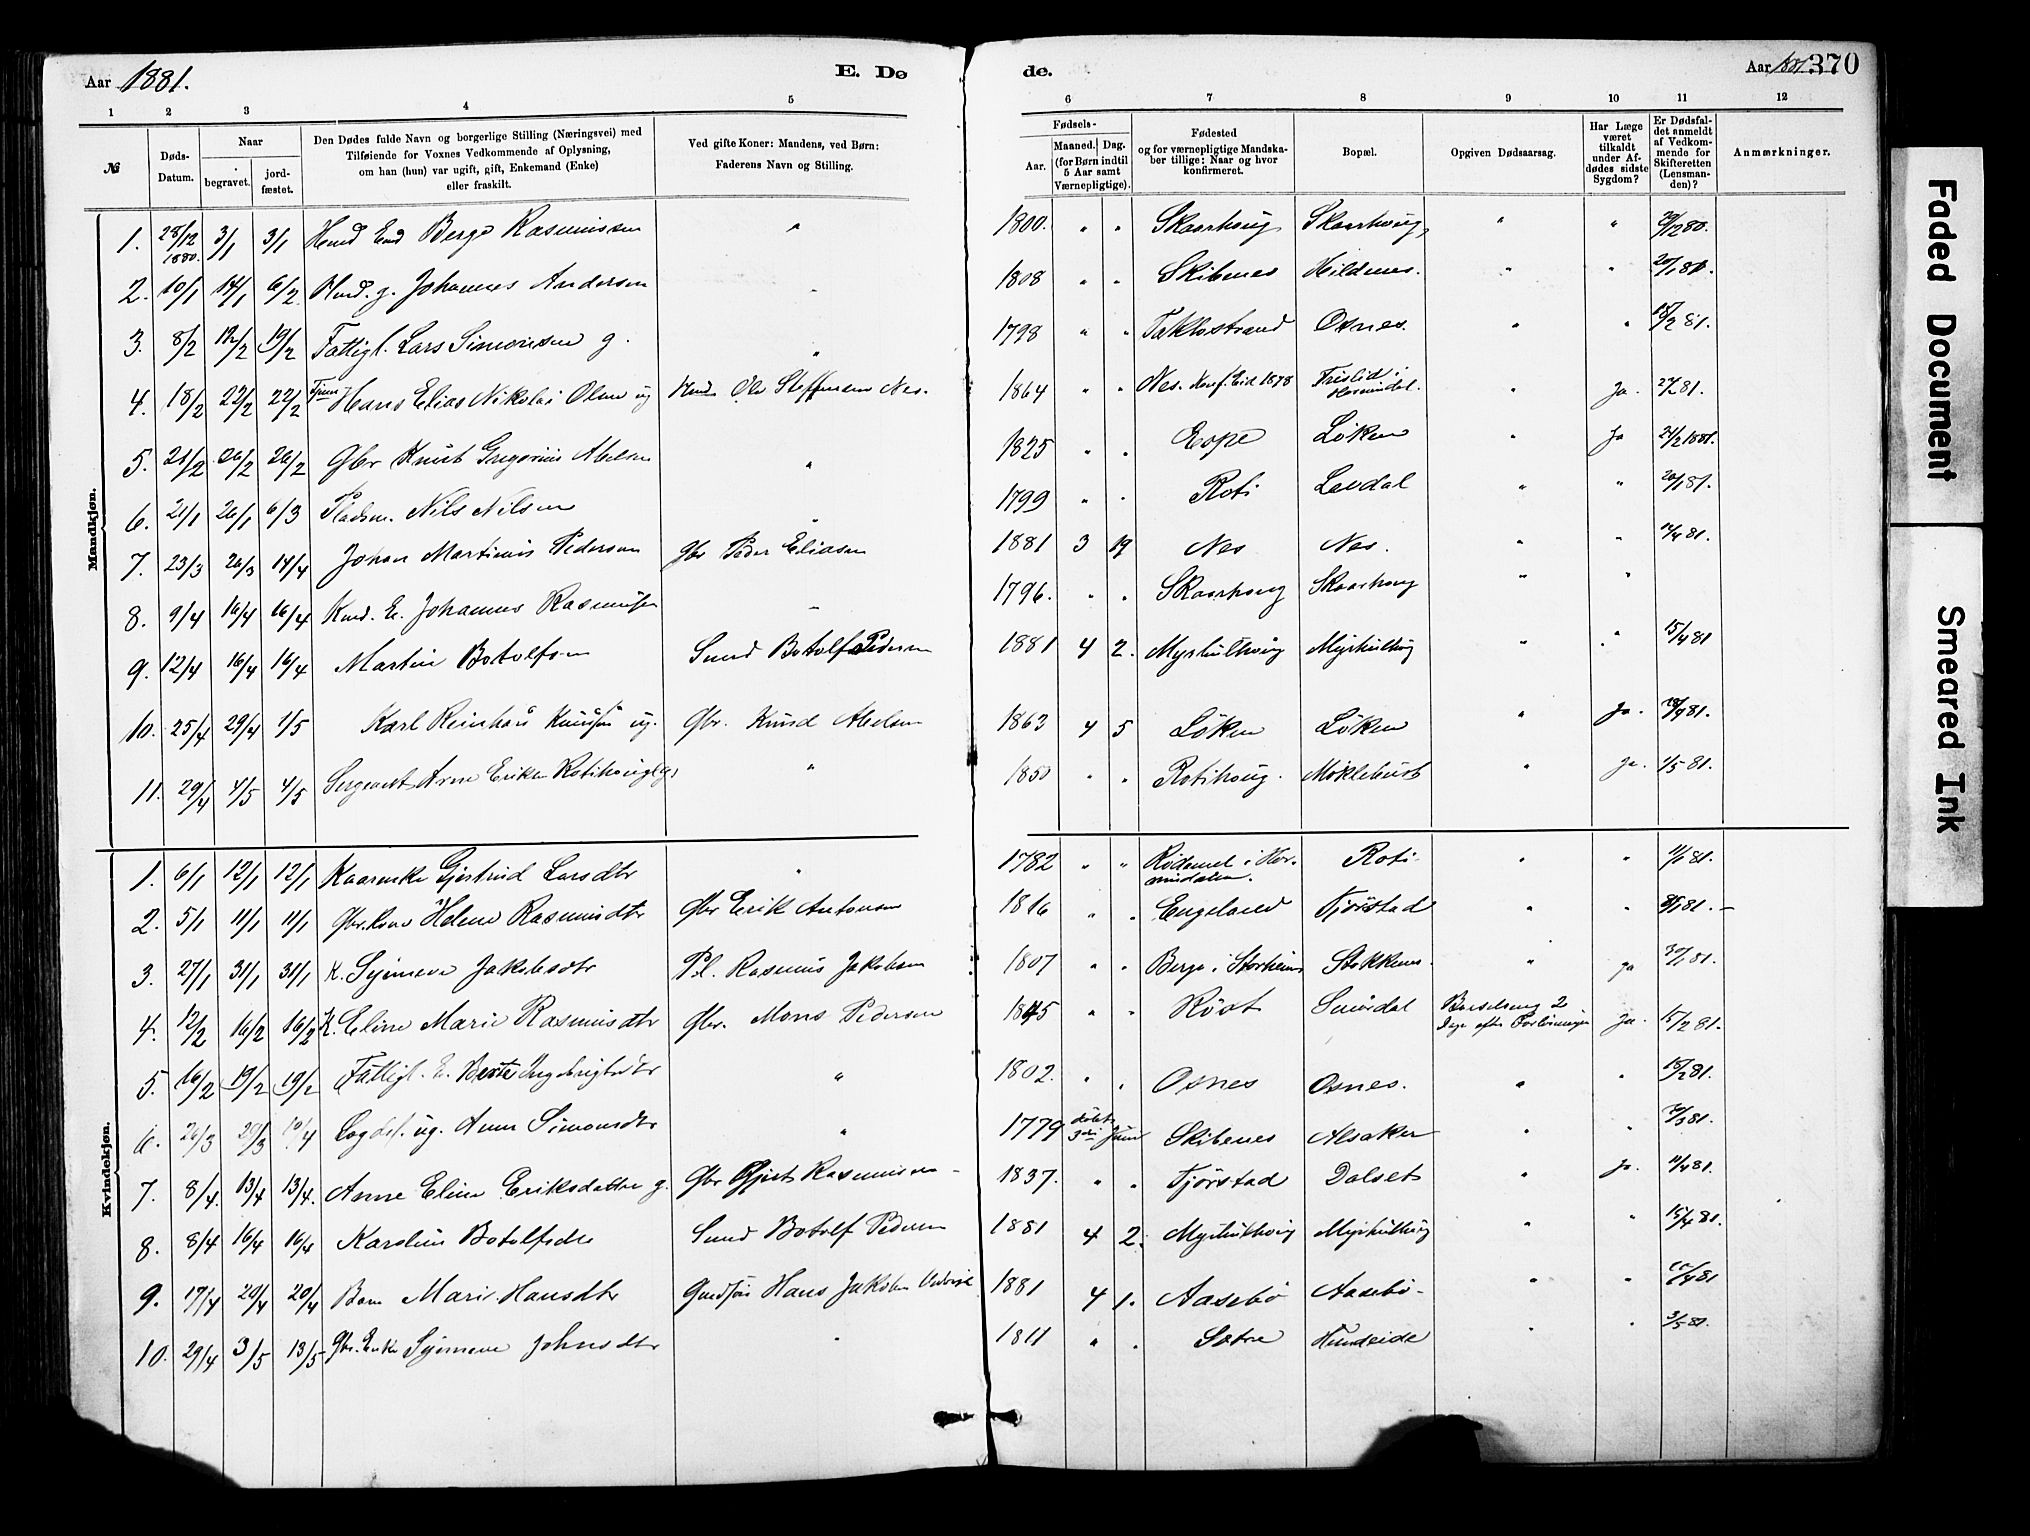 Aar 1881.
E. Dø
de.
Aar 1881. 370
1 2 3 4 5 6 7 8 9 10 11 12
№
Døds-Datum.
Naar
begravet.
jord-fæstet.
Den Dødes fulde Navn og borgerlige Stilling (Næringsvei) med
Tilføiende for Voxnes Vedkommende af Oplysning,
om han (hun) var ugift, gift, Enkemand (Enke)
eller fraskilt.
Ved gifte Koner: Mandens, ved Børn:
Faderens Navn og Stilling.
Fødsels-
Aar.
Maaned. Dag.
(for Børn indtil
5 Aar samt
Værnepligtige).
Fødested
og for værnepligtige Mandska-
ber tillige: Naar og hvor
konfirmeret.
Bopæl.
Opgiven Dødsaarsag.
Har Læge
været
tilkaldt
under Af-
dødes sidste
Sygdom?
Er Dødsfal-
det anmeldt
af Vedkom-
mende for
Skifteretten
(Lensman-
den)?
Anmærkninger.
Mandkjøn.
1. 28/12 1880. 3/1 3/1 Berge Rasmussen " 1800. " " Skaarhoug Skaarhoug, " "
2. 10/1 14/1 6/2 g. Johannes Andersen " 1808 " " Skibenes Hildenes. " " 20/1 81.
3. 8/2 12/2 19/2 Fattigl. Lars Simonsen g. " 1798 " " Taklostrand Osnes. " " 18/2 81.
4. 18/2 22/2 22/2 Hans Elias Nikolai Olsen ug Ole Steffensen Nes. 1864 " " Nes. Konf. Eid 1878 " Ja. 21/2 81.
5. 21/2 26/2 26/2 Gbr Knut Gregorius Abelsen " 1825 " " Espe Løken " Ja 24/2 1881.
6. 21/1 26/1 6/3 Pladsm. Nils Nilsen " 1799 " " Roti Levdal " " 20/1 81.
7. 23/3 26/3 14/4 Johan Martinus Pedersen Gbr Peder Eliasen 1881 3 19 Nes Nes. " " 12/4 81.
8. 9/4 16/4 16/4 Johannes Rasmusen " 1796. " " Skaarhoug Skaarhoug " "
9. 12/4 16/4 16/4 Martin Botolfsen Smed Botolf Pedersen 1881 4 2. Myrkulthoug Myrkulthoug " " 15/4 81
10. 25/4 29/4 1/5 Karl Reinhart Knutsen ug. Gbr. Knud Abelsen 1863 4 5 Løken Løken " Ja. 28/4 81.
11. 29/4 4/5 4/5 Sergeant Arne Eriksen Rotihoug g. " 1850 " " Rotihoug. Moklebust " Ja. 1/5 81.
Kvindekjøn.
1. 6/1 12/1 12/1 Kaarenke Gjertrud Larsdtr " 1782 " " Roti " " 11/1 81.
2. 5/1 11/1 11/1 Gbr.kone Helene Rasmusdtr Gbr Erik Antonsen 1816 " " Engeland Tjørstad " " 81.
3. 27/1 31/1 31/1 K. Synneve Jakobsdtr Pl. Rasmus Jakobsen 1807 " " Berge i Storheim Stokkenes. " Ja 30/1 81.
4. 12/2 16/2 16/2 K. Eline Marie Rasmusdtr Gbr. Mons Pedersen 1845 " " Røst Smørdal Barselseng 2 Dage efter Forløsningen Ja. 15/2 81.
5. 16/2 19/2 19/2 Fattigl. E. Berte Ingebrigtsdtr " 1802. " " Osnes Osnes. " " 18/2 81.
6. 26/3 29/3 10/4 Logdsl. ug. Anne Simonsdtr " 1779 døbt 3die Juni Skibenes Alsaker " " 30/3 81.
7. 8/4 13/4 13/4. Anne Eline Eriksdatter g. Gbr Gjert Rasmussen 1837. " " Tjørstad Dalset " Ja. 11/4 81.
8. 8/4 16/4 16/4 Karoline Botolfsdtr Smed Botolf Pedersen 1881 4 2. Myrkulthoug Myrkulthoug " " 15/4 81.
9. 17/4 20/4 20/4 Barn Marie Hansdtr Hans Jakobsen 1881 4 1. Aasebø Aasebø " " 81
10. 29/4 3/5 13/5 Gbr. Enke Synneve Johnsdtr " 1811 " " Sætre Hundeide " " 3/5 81.
Faded Document
Smeared Ink